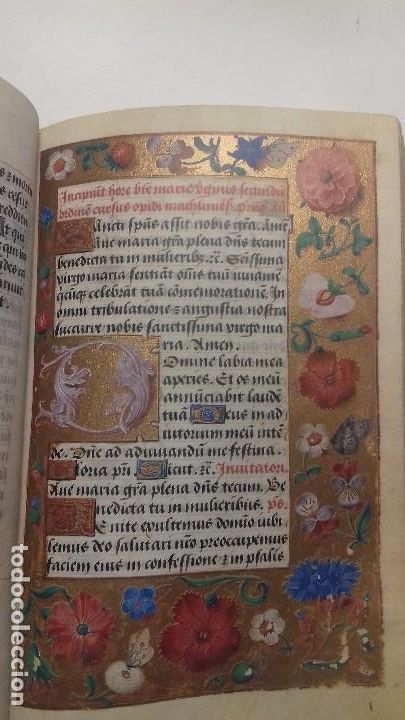 s z mortu
us
reddita
at qui
qui bo
des ca
Incipiunt hore bte marie v̄gnis secundū
ordinē cursus opidi
Sancti spūs assit nobis grā. Aue
Aue maria grā plena dn̄s tecum
benedicta tu in mulieribz. zc̄. Scissima
virgo maria sentiant om̄s tuū iuuamē
q̄cūqz celebrāt tuā comemorationē. In
omni tribulatione z angustia nostra
succurre nobis sanctissima virgo ma
ria. Amen.
Domine labia mea
aperies. Et os meū
annūciabit laudē
tuā Deus in ad
iutorum meū intē
de. Dn̄e ad adiuuandū me festina.
Gloria pr̄i Sicut. zc̄. Inuitatori.
Aue maria grā plena dn̄s tecum. Be
nedicta tu in mulieribus. ps.
Uenite exultemus domīo iubi
lemus deo salutari nr̄o preocupemus
faciem eius in confessione z in psalis
todocoleccion.net